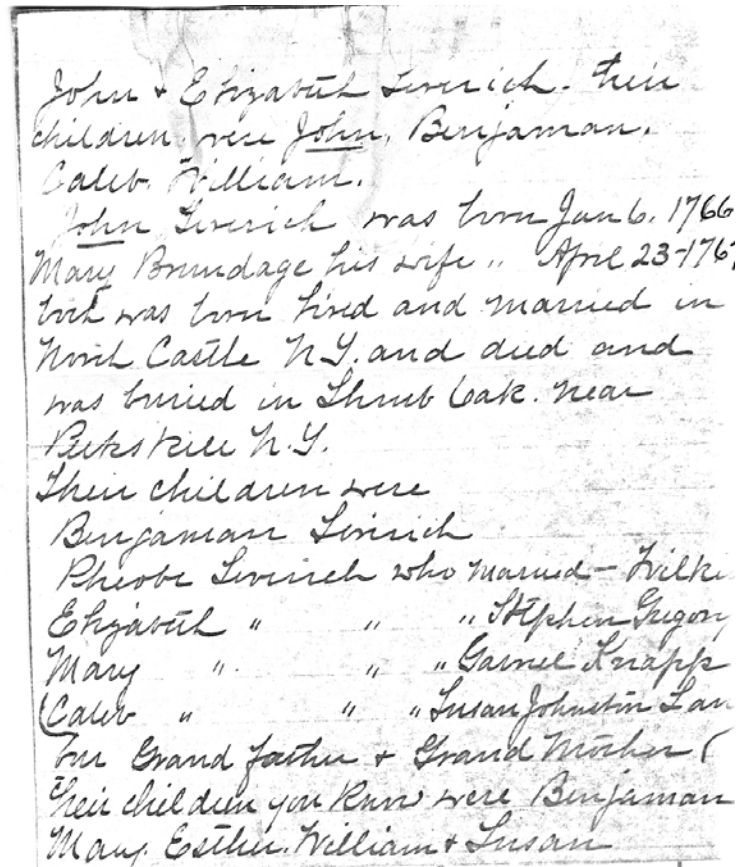 John + Elizabeth Leverich. their
children were John, Benjaman,
Caleb, William.
John Leverich was born Jan 6, 1766
Mary Brundage his wife " April 23-176
both was born lived and married in
North Castle N.Y. and died and
was buried in Shrub Oak. near
Peekskill N.Y.
Their children were
Benjaman Leverich
Pheobe Leverich who married —
Elizabeth " " " Stephen Gregory
Mary " " " Knapp
(Caleb " " " Susan Johnston
our Grand father + Grand Mother (
Their children you know were Benjaman
Mary, Esther, William + Susan